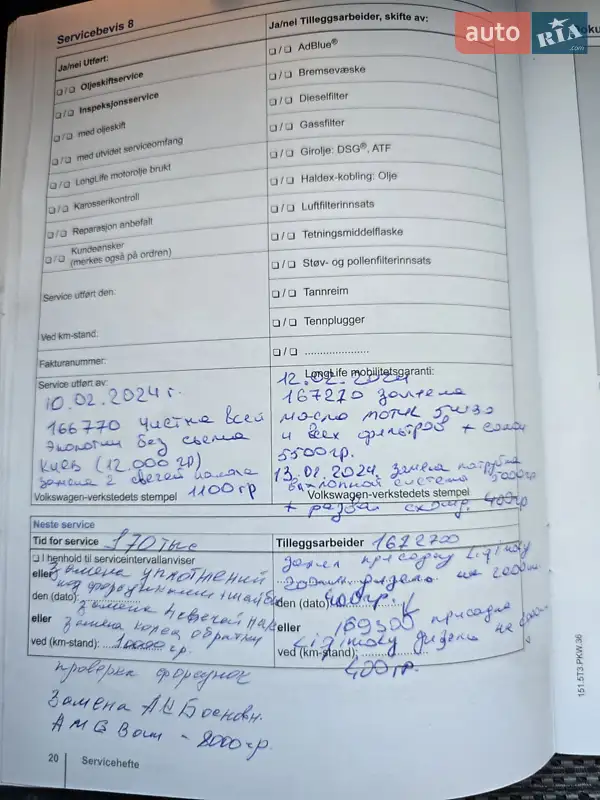 auto RIA .com
Servicebevis 8
Ja/nei Utført:
❏ / ❏ Oljeskiftservice
❏ / ❏ Inspeksjonsservice
❏ / ❏ med oljeskift
❏ / ❏ med utvidet serviceomfang
❏ / ❏ LongLife motorolje brukt
❏ / ❏ Karosserikontroll
❏ / ❏ Reparasjon anbefalt
❏ / ❏ Kundeønsker
(merkes også på ordren)
Service utført den:
Ved km-stand:
Fakturanummer:
Service utført av:
10.02.2024 г.
166770 Чистка всей
экологии без съема
Киев (12.000 гр)
замена 2 свечей накала
1100 гр
Volkswagen-verkstedets stempel
Ja/nei Tilleggsarbeider, skifte av:
❏ / ❏ AdBlue®
❏ / ❏ Bremsevæske
❏ / ❏ Dieselfilter
❏ / ❏ Gassfilter
❏ / ❏ Girolje: DSG®, ATF
❏ / ❏ Haldex-kobling: Olje
❏ / ❏ Luftfilterinnsats
❏ / ❏ Tetningsmiddelflaske
❏ / ❏ Støv- og pollenfilterinnsats
❏ / ❏ Tannreim
❏ / ❏ Tennplugger
❏ / ❏ .....................
LongLife mobilitetsgaranti:
12.02.2024
167270 замена
масло мотюль 5w30
и всех фильтров +
5500 гр.
13.02.2024 замена патрубка
выхлопной система 5000гр
Volkswagen-verkstedets stempel
+ развал сход 400гр
Neste service
Tid for service 170 тыс
❏ I henhold til serviceintervallanviser
замена уплотнений
eller
под форсунками + шайбы
den (dato):
замена 4 свечей нак
eller
замена обратки
ved (km-stand): 10000 гр.
проверка форсунок
Замена АКБ основн.
Tilleggsarbeider
присадку
den (dato) 400 гр.
eller 169300 присадка
ved (km-stand):
400 гр.
20 Servicehefte
151.5T3.PKW.36